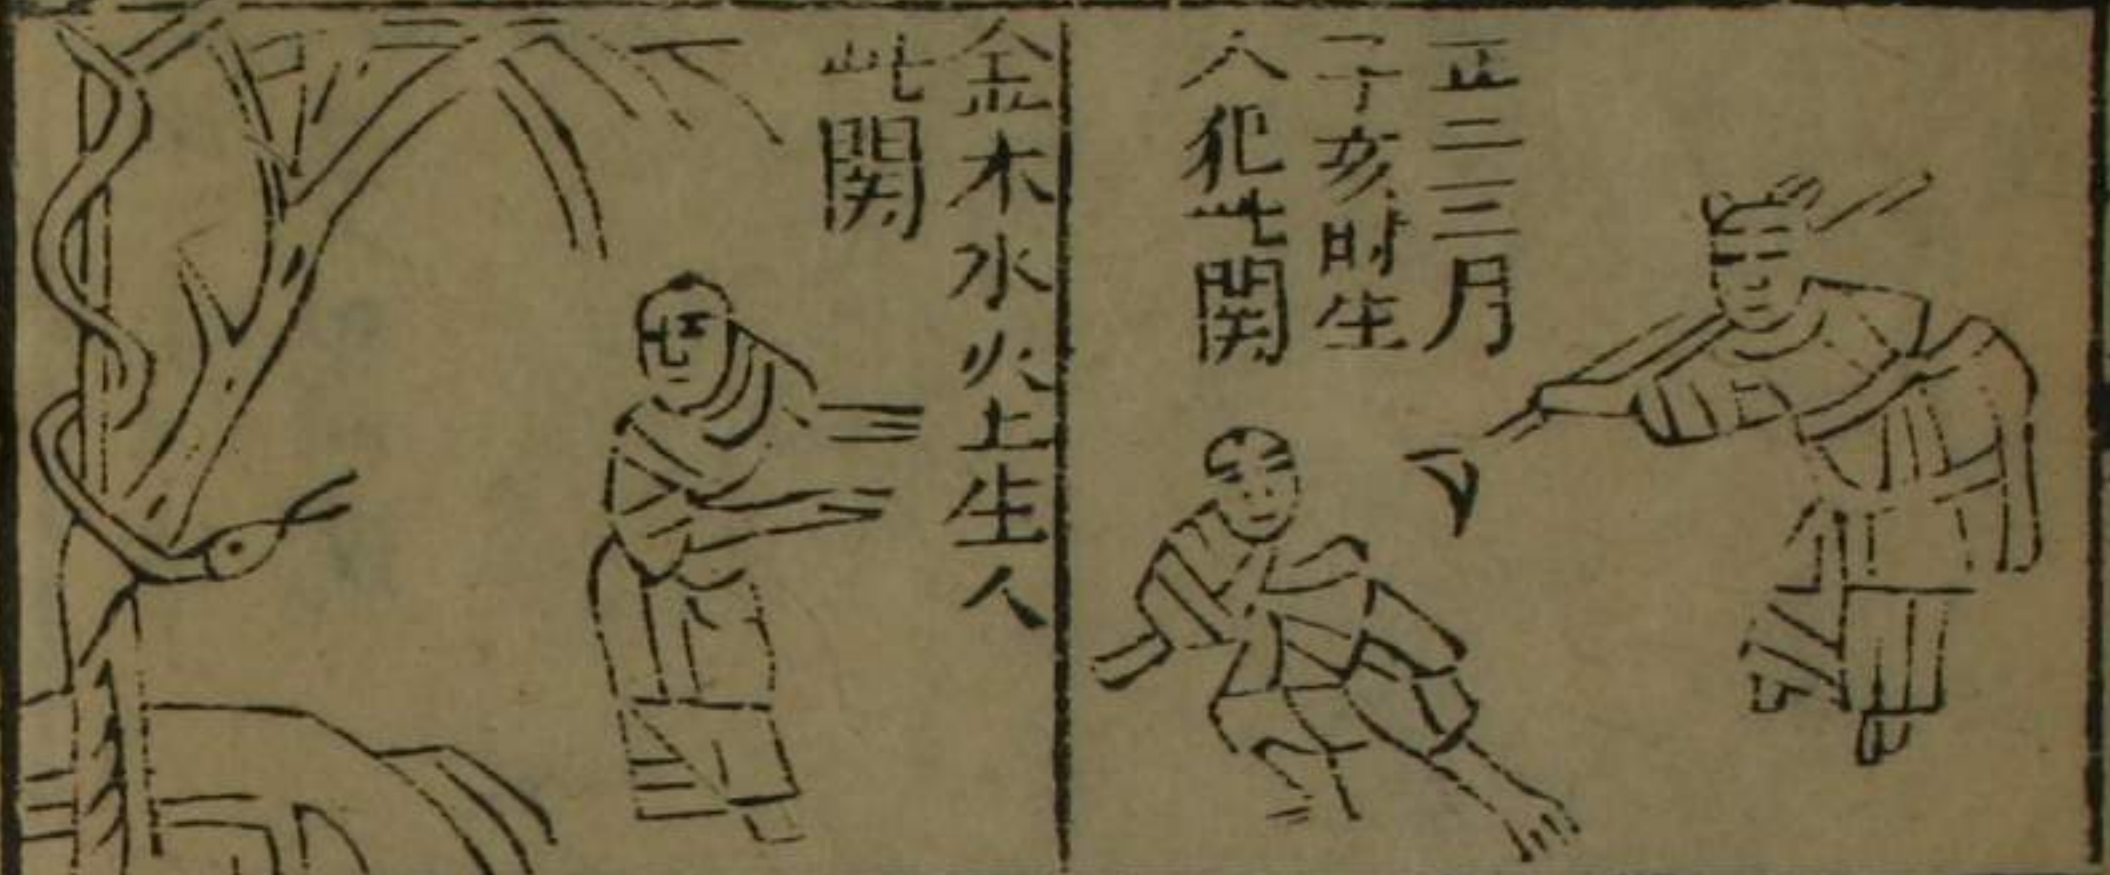 正二三月
子亥时生
人犯此関
金木水火土生人
此関